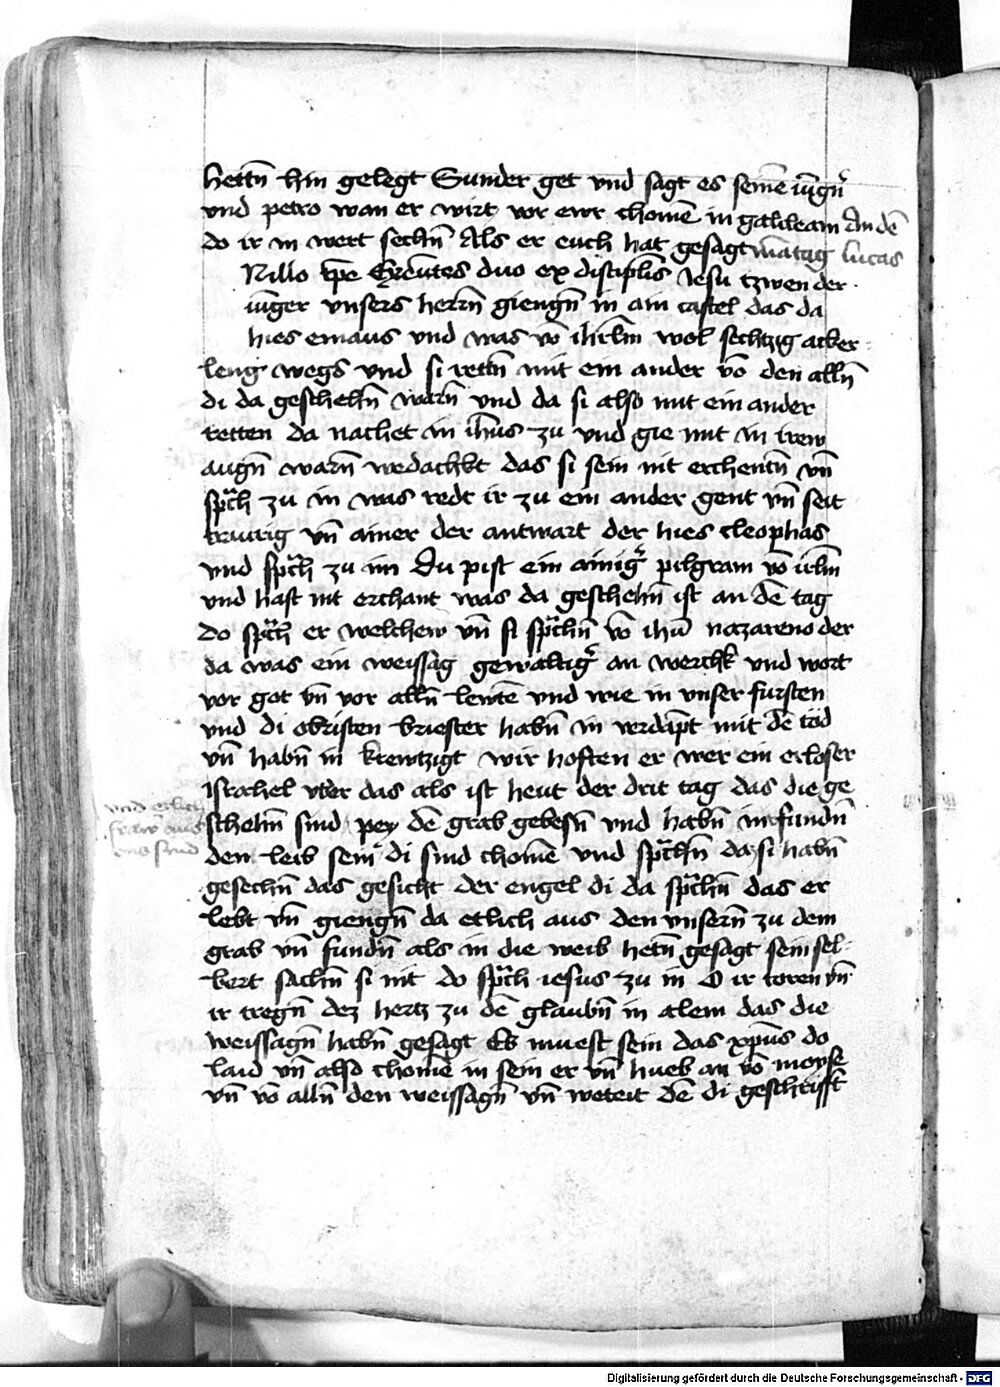 hettn̄ hin gelegt Sunder get vnd sagt es seinē iūgn̄
vnd petro wan er wirt vor ewr chomē in galileam An dē
do ir in wert sechn̄ Als er euch hat gesagt māttag lucas
Nillo tp̄e Exeūtes duo ex discipl̄is Jesu tzwen der
iūger vnsers herrn̄ giengn̄ in ain castel das da
hies emaus vnd was vō ihrlm̄ wol sechtzig acker
leng wegs vnd si rettn̄ mit ein ander vō den alln̄
di da geschehn̄ warn̄ vnd da si also mit ein ander
retten da nachet in ih̄us zu vnd gie mit in irew
augn̄ warn̄ verdackht das si sein nit erchentn̄ vn̄
sp̄ch zu in was redt ir zu ein ander gent vn̄ seit
traurig vn̄ ainer der antwart der hies cleophas
vnd sp̄ch zu im Du pist ein ainigr̄ pilgram vō irlm̄
vnd hast nit erchant was da geschehn̄ ist an dē tag
do sp̄ch er welchew vn̄ si sp̄chn̄ vō ihū nazareno der
da was ein weissag gewaltigr̄ an werchk vnd wort
vor got vn̄ vor alln̄ lewtē vnd wie in vnser fursten
vnd di obristen briester habn̄ in verdāpt mit dē tod
vn̄ habn̄ in krewtzigt wir hoften er wer ein erloser
Israhel vber das als ist heut der drit tag das die ge
schehn̄ sind pey dē grab gebesn̄ vnd habn̄ nit fundn̄
vnd etlich
fraw̄ aus
vns sind
den leib sein di sind chomē vnd sp̄chn̄ da si habn̄
gesechn̄ das gesicht der engel di da sp̄chn̄ das er
lebt vn̄ giengn̄ da etlich aus den vnsern̄ zu dem
grab vn̄ fundn̄ als in die weib hetn̄ gesagt sein sel
bert sachn̄ si nit do sp̄ch iesus zu in O ir toren vn̄
ir tregn̄ dez hertz zu dē glaubn̄ in alem das die
weissagn̄ habn̄ gesagt Es muest sein das xp̄us do
laid vn̄ also chomē in sein er vn̄ hueb an vō moyse
vn̄ vō alln̄ den weissagn̄ vn̄ weteit dē di geschrifft
Digitalisierung gefördert durch die Deutsche Forschungsgemeinschaft - DFG